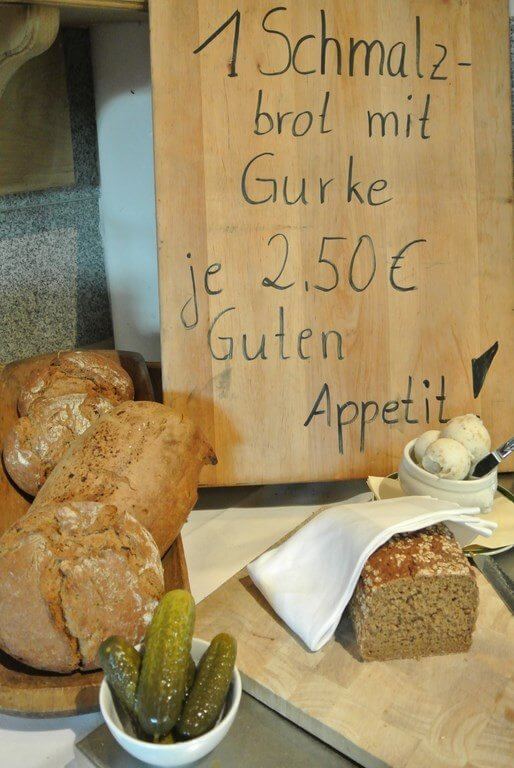 1 Schmalz-
brot mit
Gurke
je 2,50€
Guten
Appetit!